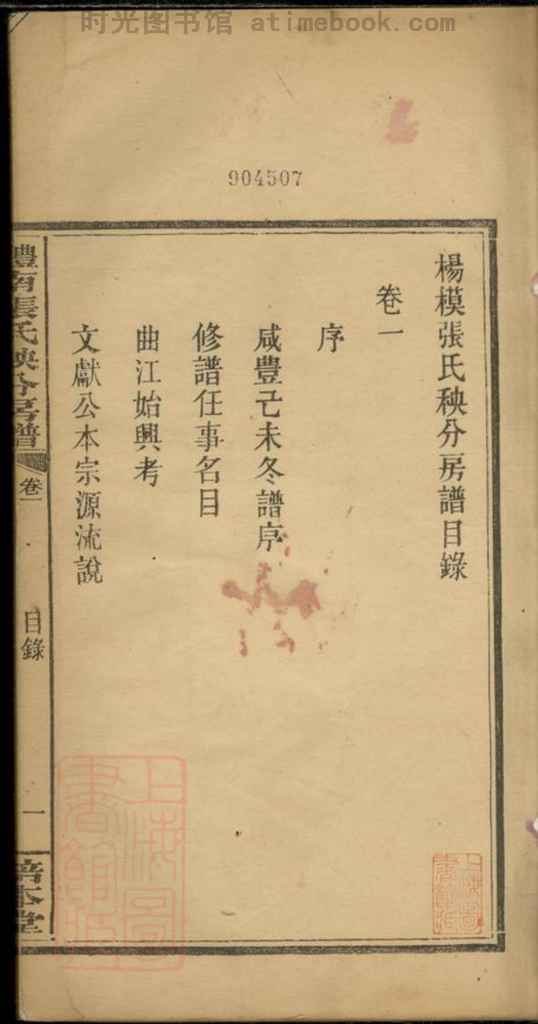 时光图书馆 atimebook.com
904507
楊模張氏秧分房譜目錄
卷一
序
咸豐己未冬譜序
修譜任事名目
曲江始興考
文獻公本宗源流說
醴南張氏秧分房譜
卷一
目錄
一
培本堂
上海圖書館藏